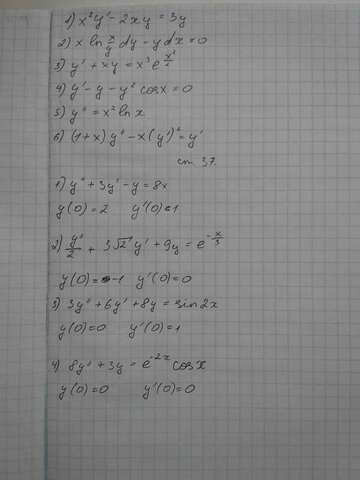 1) x²y' - 2xy = 3y
2) x ln x/y dy - y dx = 0
3) y' + xy = x³ e^(x²/2)
4) y' - y - y² cos x = 0
5) y'' = x² ln x
6) (1+x) y'' - x(y')² = y'
ст 37.
1) y'' + 3y' - y = 8x
y(0) = 2 y'(0) = 1
2) y''/2 + 3√2 y' + 9y = e^(-x/3)
y(0) = -1 y'(0) = 0
3) 3y'' + 6y' + 8y = sin 2x
y(0) = 0 y'(0) = 1
4) 8y'' + 3y = e^(-2x) cos x
y(0) = 0 y'(0) = 0